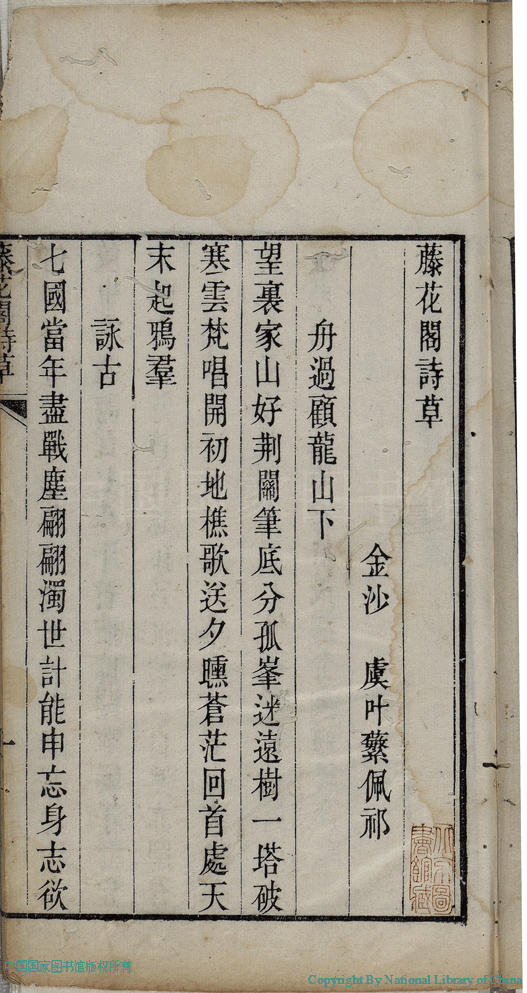 藤花閣詩草
金沙　虞叶蘩佩祁
舟過顧龍山下
望裏家山好荆關筆底分孤峯迷遠樹一塔破
寒雲梵唱開初地樵歌送夕曛蒼茫回首處天
末起鴉羣
詠古
七國當年盡戰塵翩翩濁世計能申忘身志欲
藤花閣詩草
一
北京圖書館藏
中国国家图书馆版权所有
Copyright By National Library of China